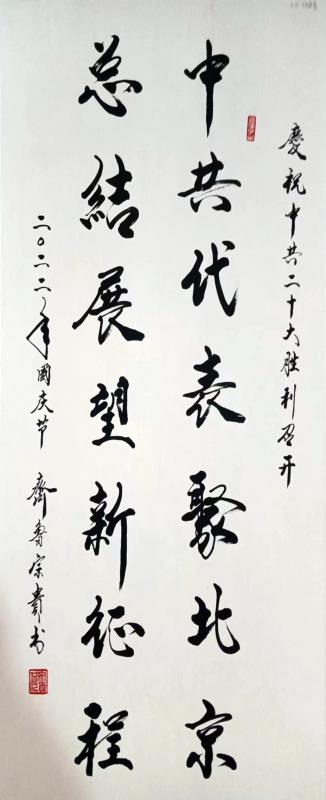 慶祝中共二十大胜利召开
中共代表聚北京
总結展望新征程
二〇二二年國庆节 齊魯宗貴书